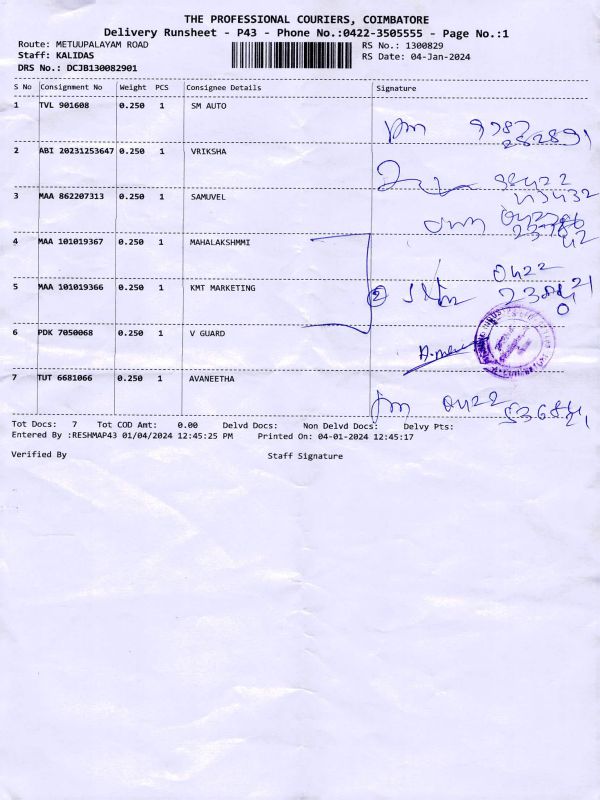 THE PROFESSIONAL COURIERS, COIMBATORE
Delivery Runsheet - P43 - Phone No.:0422-3505555 - Page No.:1
Route: METUUPALAYAM ROAD RS No.: 1300829
Staff: KALIDAS RS Date: 04-Jan-2024
DRS No.: DCJB130082901
S No Consignment No Weight PCS Consignee Details Signature
1 TVL 901608 0.250 1 SM AUTO
2 ABI 20231253647 0.250 1 VRIKSHA
3 MAA 862207313 0.250 1 SAMUVEL
4 MAA 101019367 0.250 1 MAHALAKSHMMI
0422
5 MAA 101019366 0.250 1 KMT MARKETING
2
6 PDK 7050068 0.250 1 V GUARD
7 TUT 6681066 0.250 1 AVANEETHA
0422
Tot Docs: 7 Tot COD Amt: 0.00 Delvd Docs: Non Delvd Docs: Delvy Pts:
Entered By :RESHMAP43 01/04/2024 12:45:25 PM Printed On: 04-01-2024 12:45:17
Verified By Staff Signature